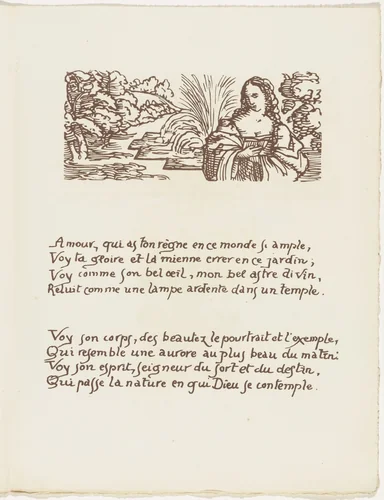 Amour, qui as ton règne en ce monde si ample,
Voy ta gloire et la mienne errer en ce jardin;
Voy comme son bel œil, mon bel astre divin,
Reluit comme une lampe ardente dans un temple.
Voy son corps, des beautez le pourtrait et l'exemple,
Qui resemble une aurore au plus beau du matin:
Voy son esprit, seigneur du sort et du destin,
Qui passe la nature en qui Dieu se contemple.